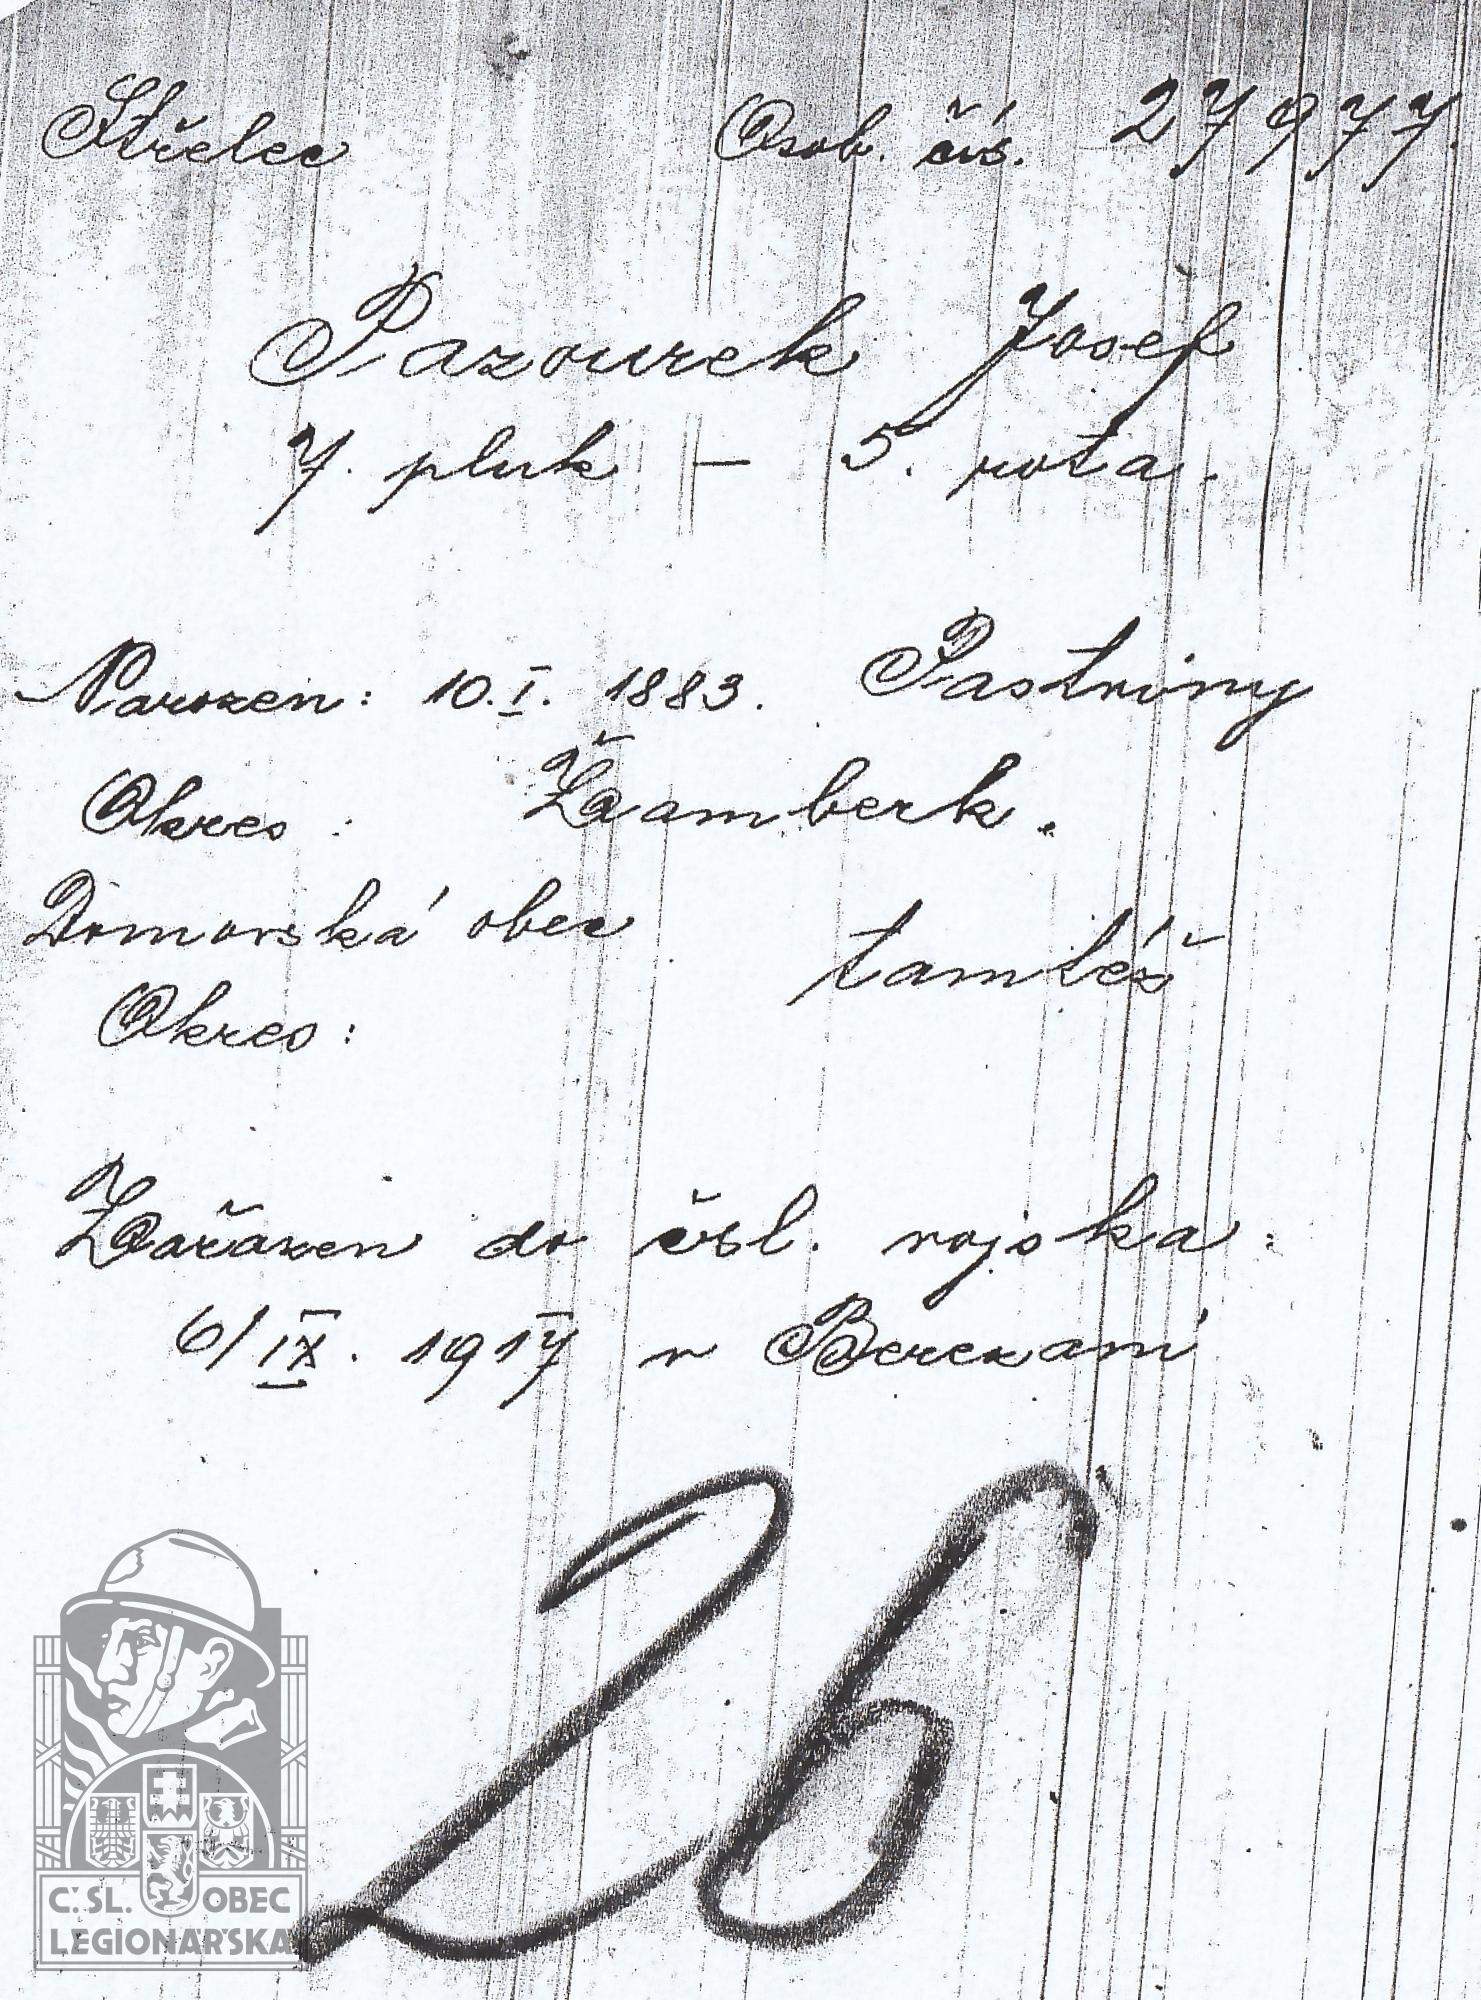 Střelec Osob. čís. 27977.
Pazourek Josef
7. pluk – 5. rota.
Narozen: 10. I. 1883. Pastviny
Okres: Žamberk.
Domovská obec tamtéž
Okres:
Zařazen do čsl. vojska:
6/IX. 1917 v Berezani
26
Č.SL. OBEC
LEGIONÁŘSKÁ